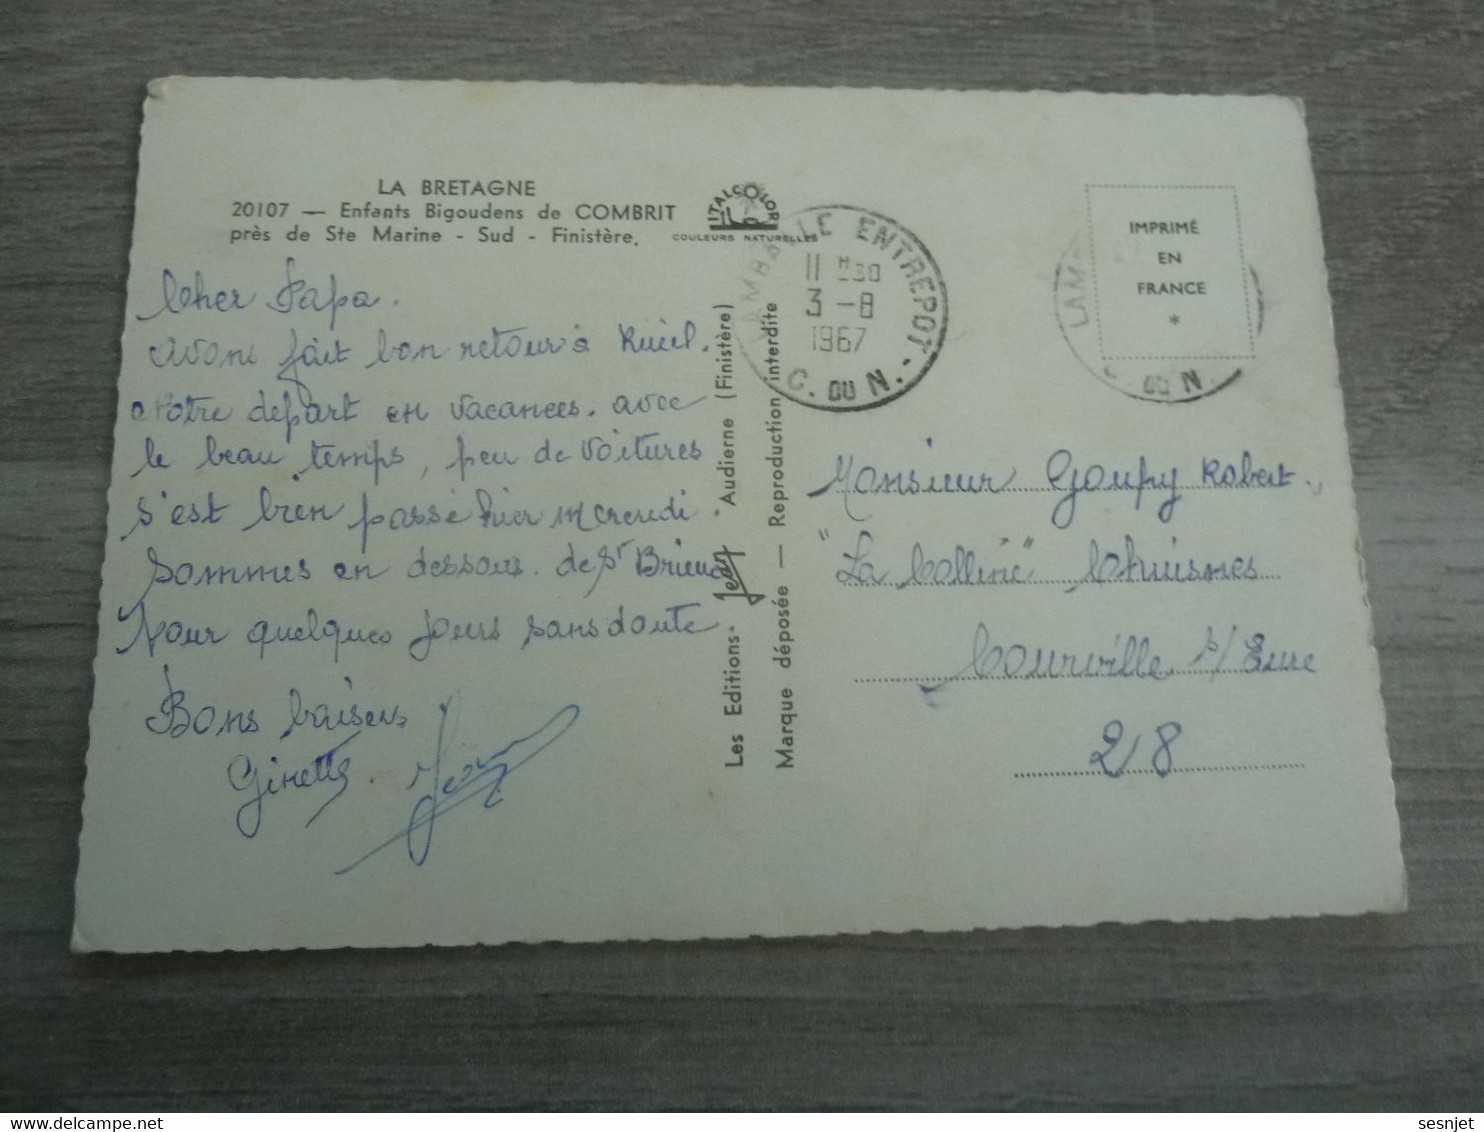 LA BRETAGNE
20107 — Enfants Bigoudens de COMBRIT
près de Ste Marine - Sud - Finistère.
ITALCOLOR
COULEURS NATURELLES
Cher Papa.
avons fait bon retour à Rueil.
Notre depart en vacances. avec
le beau temps, peu de voitures
s'est bien passé hier mercredi
Sommes en dessous. de St Brieuc
Pour quelques jours sans doute
Bons baisers
Ginette. Jean
Les Editions "Jean" Audierne (Finistère)
Marque déposée — Reproduction interdite
LAMBALLE ENTREPOT
11 H 30
3 -8
1967
C. DU N.
LAMB
C. DU N.
IMPRIMÉ
EN
FRANCE
*
Monsieur Goupy Robert
"La Colline" Chuisnes
Courville s/ Eure
28
sesnjet